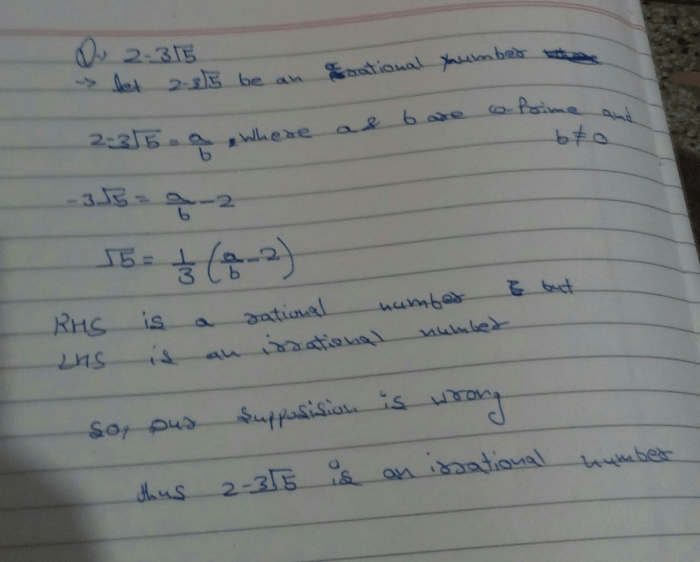 Q. 2-3√5
→ let 2-3√5 be an rational number
2-3√5 = a/b, where a & b are co-Prime and
b≠0
-3√5 = a/b - 2
√5 = 1/3 (a/b - 2)
RHS is a rational number & but
LHS is an irrational number
So, our supposision is wrong
thus 2-3√5 is an irrational number